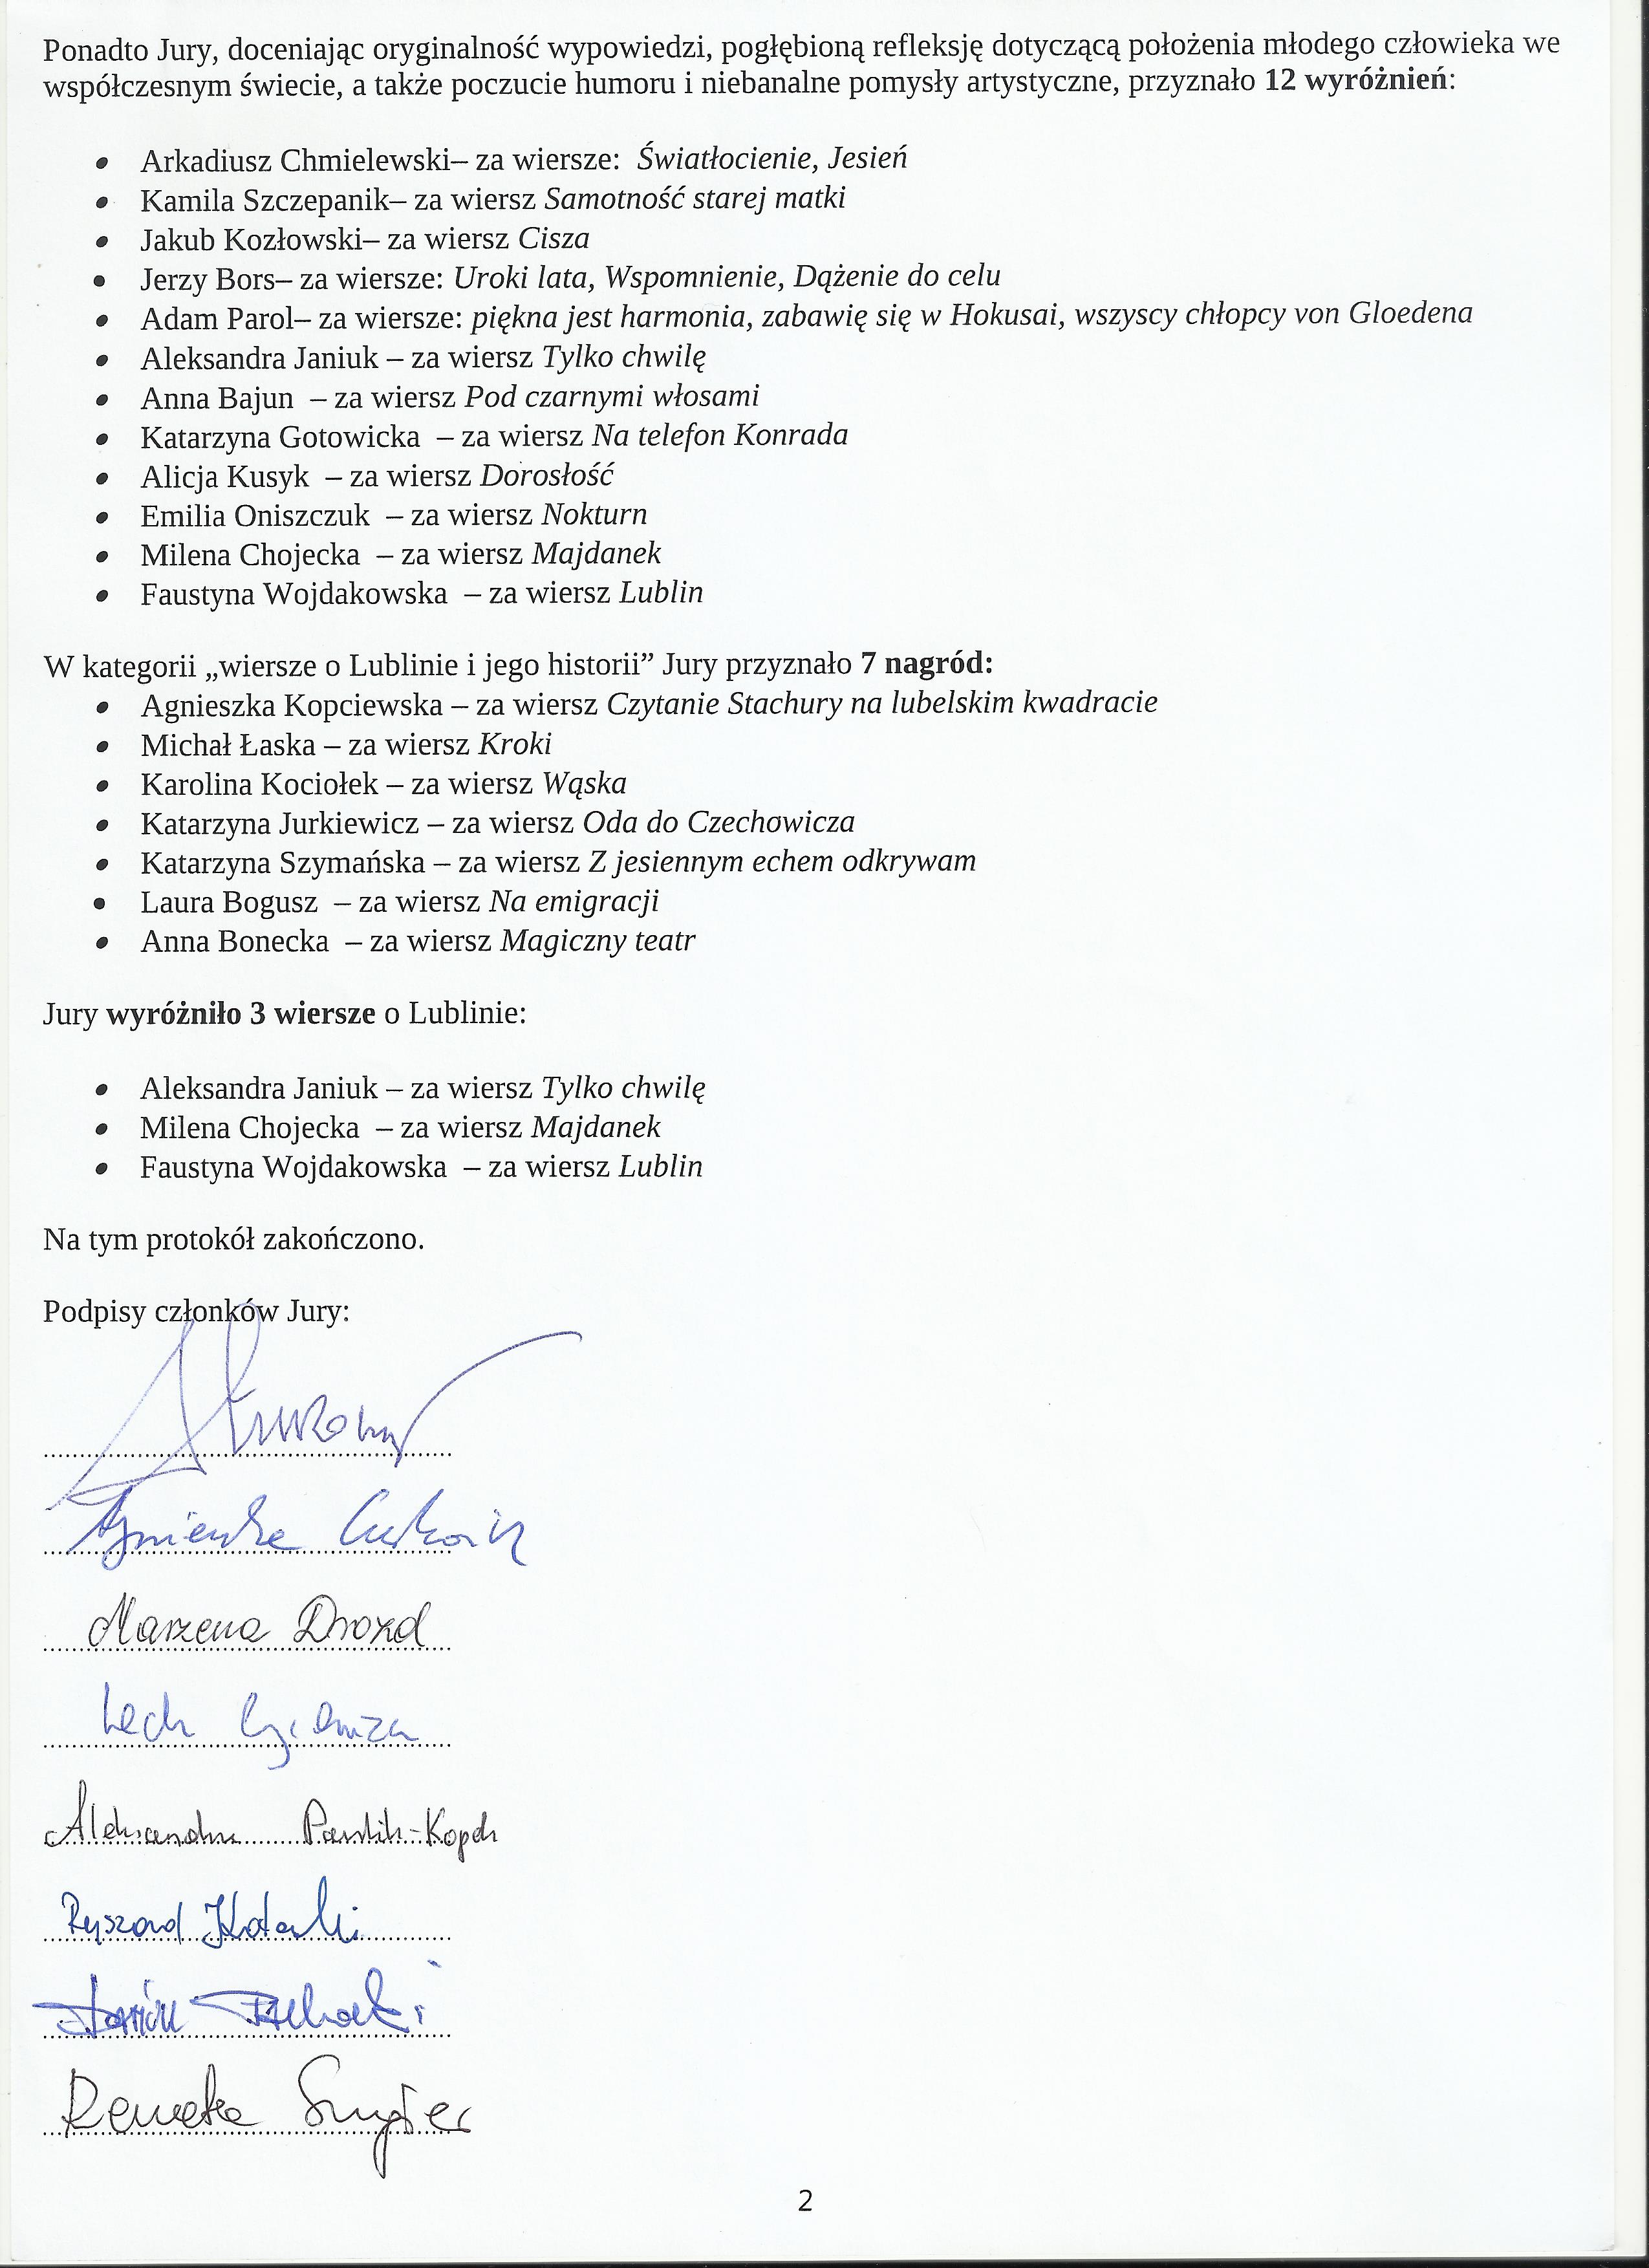 Ponadto Jury, doceniając oryginalność wypowiedzi, pogłębioną refleksję dotyczącą położenia młodego człowieka we
współczesnym świecie, a także poczucie humoru i niebanalne pomysły artystyczne, przyznało 12 wyróżnień:
• Arkadiusz Chmielewski– za wiersze: Światłocienie, Jesień
• Kamila Szczepanik– za wiersz Samotność starej matki
• Jakub Kozłowski– za wiersz Cisza
• Jerzy Bors– za wiersze: Uroki lata, Wspomnienie, Dążenie do celu
• Adam Parol– za wiersze: piękna jest harmonia, zabawię się w Hokusai, wszyscy chłopcy von Gloedena
• Aleksandra Janiuk – za wiersz Tylko chwilę
• Anna Bajun – za wiersz Pod czarnymi włosami
• Katarzyna Gotowicka – za wiersz Na telefon Konrada
• Alicja Kusyk – za wiersz Dorosłość
• Emilia Oniszczuk – za wiersz Nokturn
• Milena Chojecka – za wiersz Majdanek
• Faustyna Wojdakowska – za wiersz Lublin
W kategorii „wiersze o Lublinie i jego historii” Jury przyznało 7 nagród:
• Agnieszka Kopciewska – za wiersz Czytanie Stachury na lubelskim kwadracie
• Michał Łaska – za wiersz Kroki
• Karolina Kociołek – za wiersz Wąska
• Katarzyna Jurkiewicz – za wiersz Oda do Czechowicza
• Katarzyna Szymańska – za wiersz Z jesiennym echem odkrywam
• Laura Bogusz – za wiersz Na emigracji
• Anna Bonecka – za wiersz Magiczny teatr
Jury wyróżniło 3 wiersze o Lublinie:
• Aleksandra Janiuk – za wiersz Tylko chwilę
• Milena Chojecka – za wiersz Majdanek
• Faustyna Wojdakowska – za wiersz Lublin
Na tym protokół zakończono.
Podpisy członków Jury:
Agnieszka
Marzena Drozd
Lech
Aleksandra Pawlik-Kopek
Ryszard
Renata
2